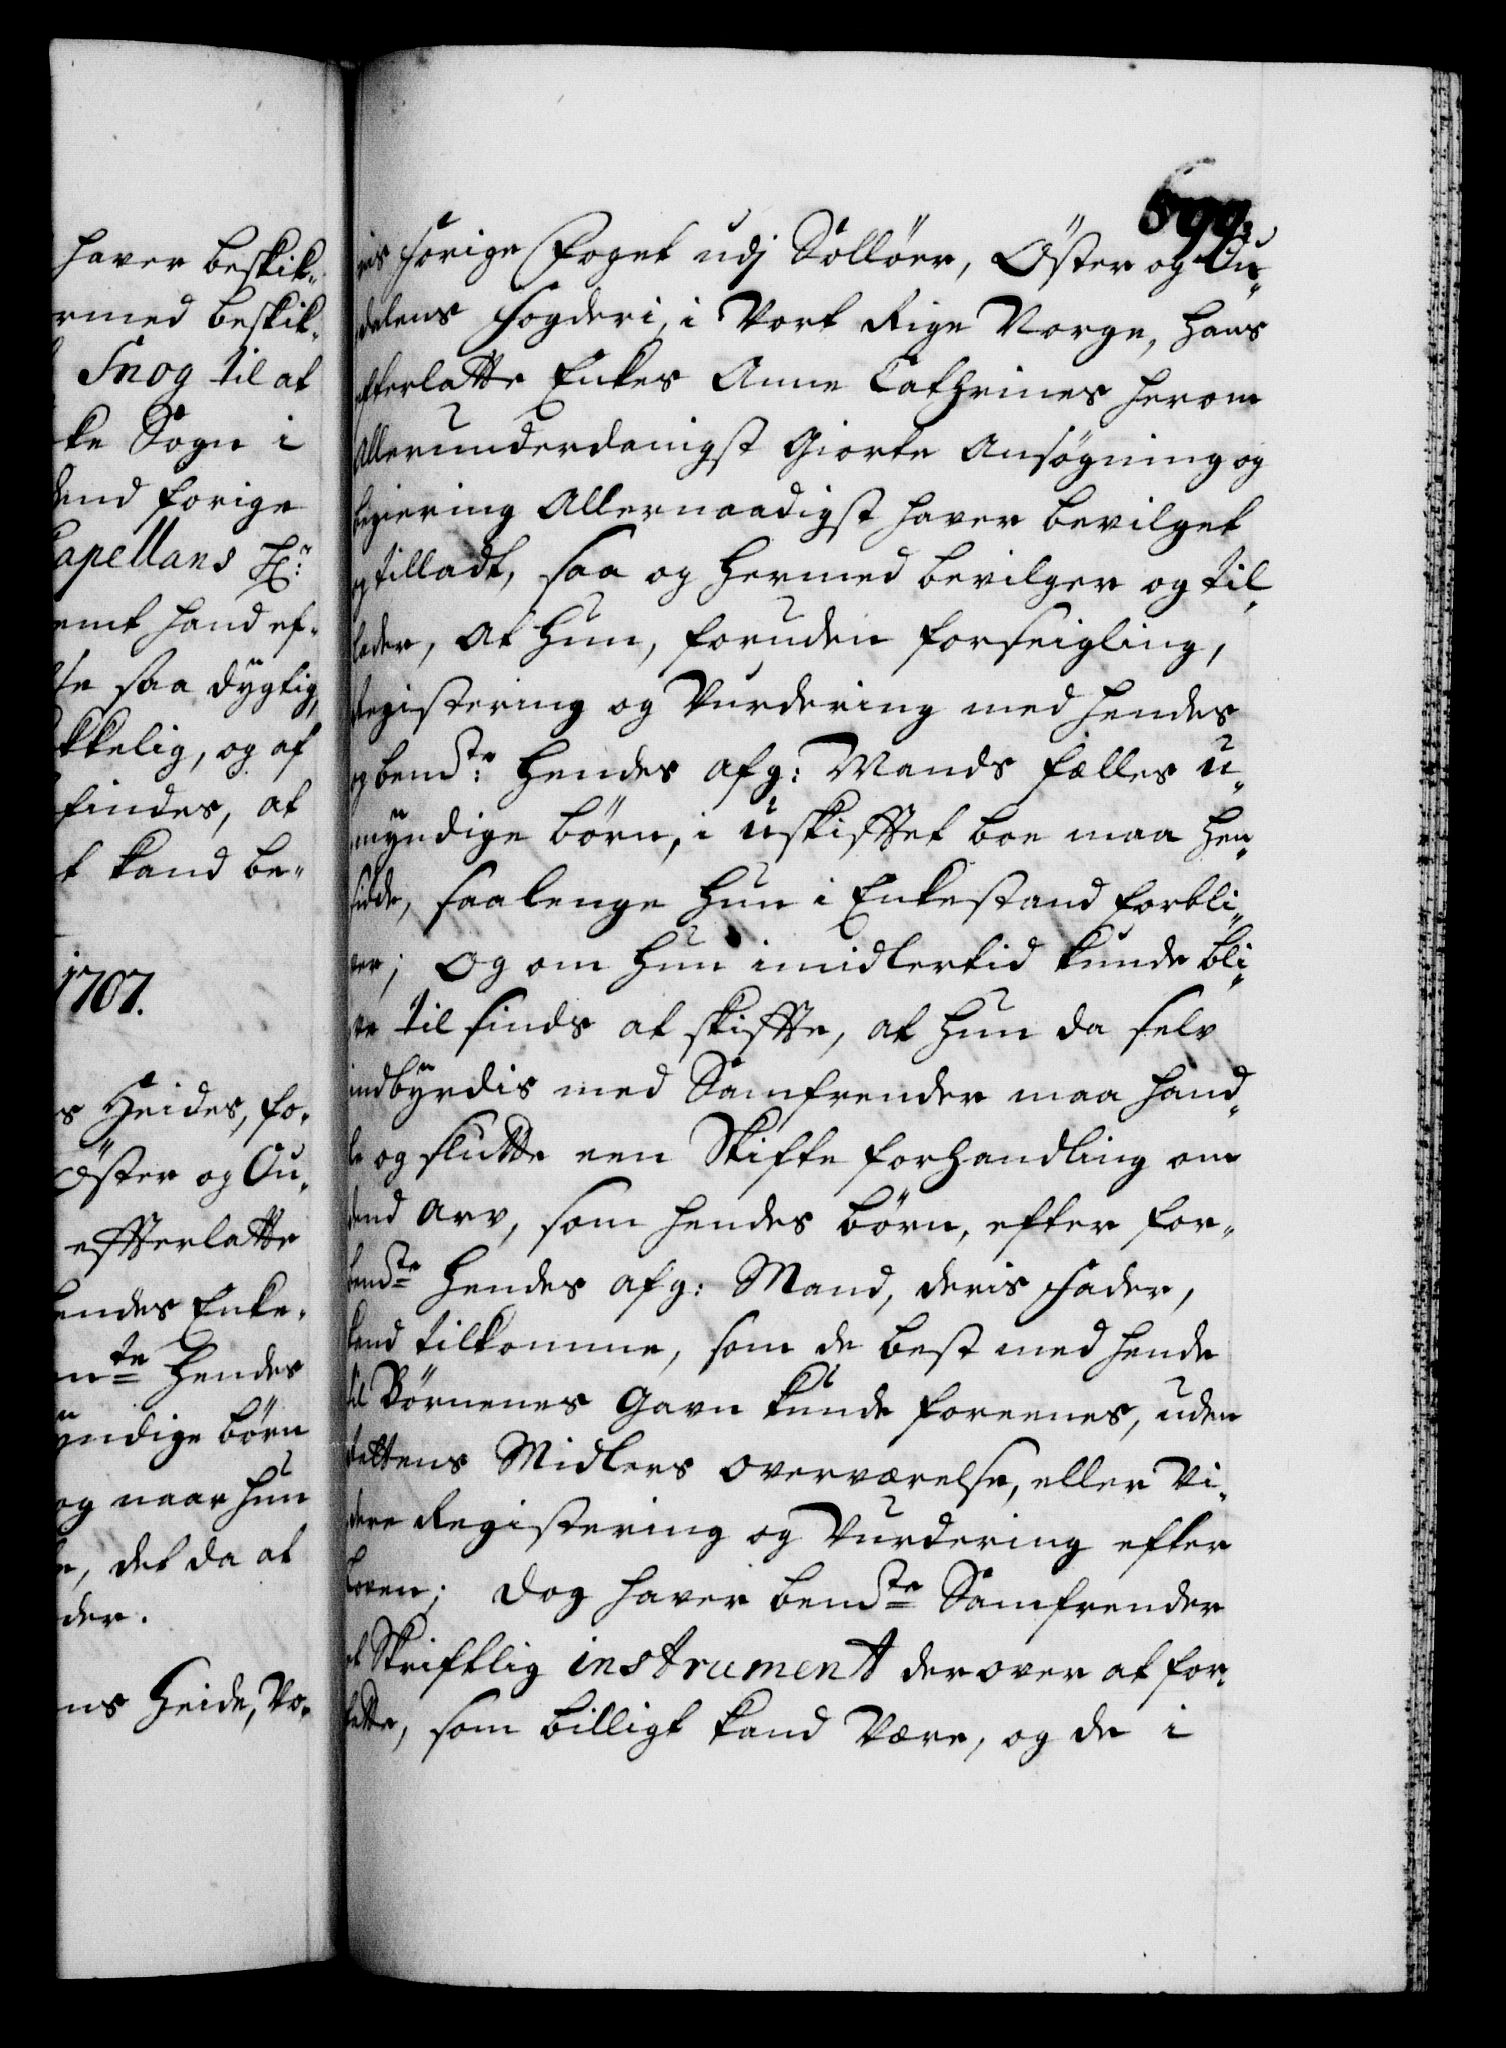 haver beskik-
rmed beskik-
Snog til at
ke Sogn i
dend forige
Capellans Hr:
emt hand ef-
se saa dygtig,
kkelig, og af
findes, at
t kand be-
1707.
s Heides, fo-
Öster og Ou-
effterlatte
hendes Enke-
nte hendes
yndige börn
og naar hun
e, det da at
der.
ns Heide, Vo-
599.
ris forige Foget udj Sollöer, Öster og Ou-
dalens Fogderi, i Vort Rige Norge, hans
efterlatte Enkes Anne Cathrines herom
Allerunderdanigst giorte Ansögning og
begiering Allernaadigst haver bevilget
og tilladt, saa og hermed bevilger og til-
lader, at hun, foruden forseigling,
Registering og Vurdering med hendes
og bemte: hendes afg: Mands fælles u-
myndige börn, i uskifftet boe maa hen-
sidde, saalenge hun i Enkestand forbli-
ver; Og om hun imidlertid kunde bli-
ve til sinds at skiffte, at hun da selv
indbyrdis med Samfrender maa hand-
le og slutte een Skifte forhandling om
dend arv, som hendes börn, efter for-
bemte hendes afg: Mand, deris fader,
kand tilkomme, som de best med hende
til Börnenes Gavn kunde foreenes, uden
Rettens Midlers overværelse, eller Vi-
dere Registering og Vurdering efter
Loven; dog haver bemte Samfrender
et Skriftlig instrument derover at for-
fatte, som billigt kand Være, og de i